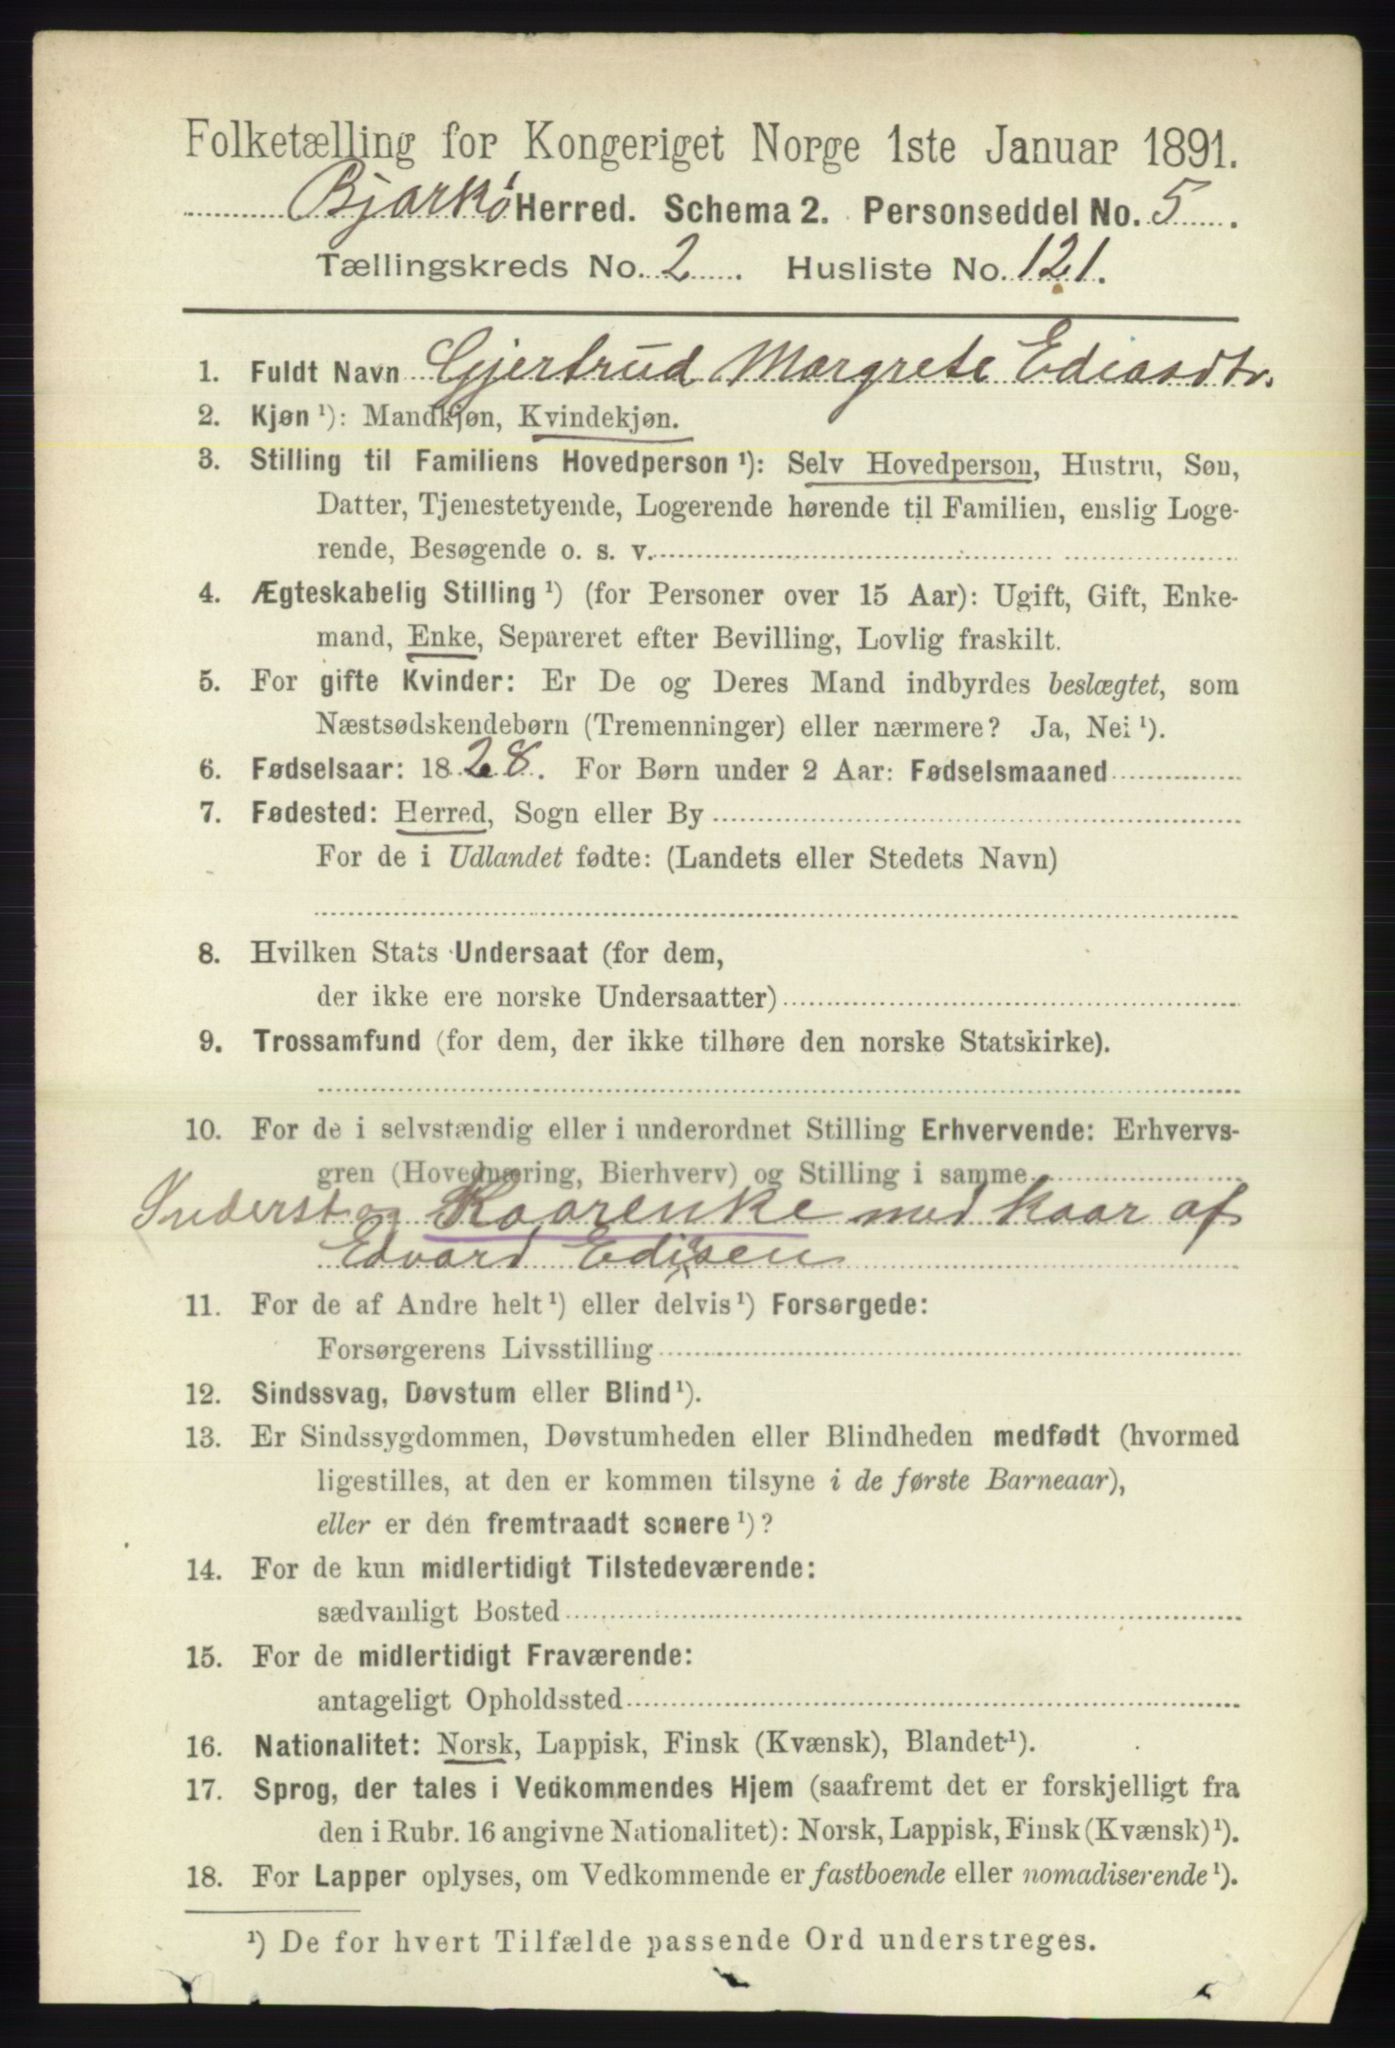 Folketælling for Kongeriget Norge 1ste Januar 1891.
Bjarkø Herred. Schema 2. Personseddel No. 5.
Tællingskreds No. 2. Husliste No. 121.
1. Fuldt Navn Gjertrud Margrete Ediasdtr.
2. Kjøn ¹): Mandkjøn, Kvindekjøn.
3. Stilling til Familiens Hovedperson ¹): Selv Hovedperson, Hustru, Søn,
Datter, Tjenestetyende, Logerende hørende til Familien, enslig Loge-
rende, Besøgende o. s. v.
4. Ægteskabelig Stilling ¹) (for Personer over 15 Aar): Ugift, Gift, Enke-
mand, Enke, Separeret efter Bevilling, Lovlig fraskilt.
5. For gifte Kvinder: Er De og Deres Mand indbyrdes beslægtet, som
Næstsødskendebørn (Tremenninger) eller nærmere? Ja, Nei ¹).
6. Fødselsaar: 1828. For Børn under 2 Aar: Fødselsmaaned
7. Fødested: Herred, Sogn eller By
For de i Udlandet fødte: (Landets eller Stedets Navn)
8. Hvilken Stats Undersaat (for dem,
der ikke ere norske Undersaatter)
9. Trossamfund (for dem, der ikke tilhøre den norske Statskirke).
10. For de i selvstændig eller i underordnet Stilling Erhvervende: Erhvervs-
gren (Hovednæring, Bierhverv) og Stilling i samme
Inderst og Kaarenke med kaar af
Edvard Ediasen
11. For de af Andre helt ¹) eller delvis ¹) Forsørgede:
Forsørgerens Livsstilling
12. Sindssvag, Døvstum eller Blind ¹).
13. Er Sindssygdommen, Døvstumheden eller Blindheden medfødt (hvormed
ligestilles, at den er kommen tilsyne i de første Barneaar),
eller er den fremtraadt senere ¹)?
14. For de kun midlertidigt Tilstedeværende:
sædvanligt Bosted
15. For de midlertidigt Fraværende:
antageligt Opholdssted
16. Nationalitet: Norsk, Lappisk, Finsk (Kvænsk), Blandet ¹).
17. Sprog, der tales i Vedkommendes Hjem (saafremt det er forskjelligt fra
den i Rubr. 16 angivne Nationalitet): Norsk, Lappisk, Finsk (Kvænsk) ¹).
18. For Lapper oplyses, om Vedkommende er fastboende eller nomadiserende ¹).
¹) De for hvert Tilfælde passende Ord understreges.